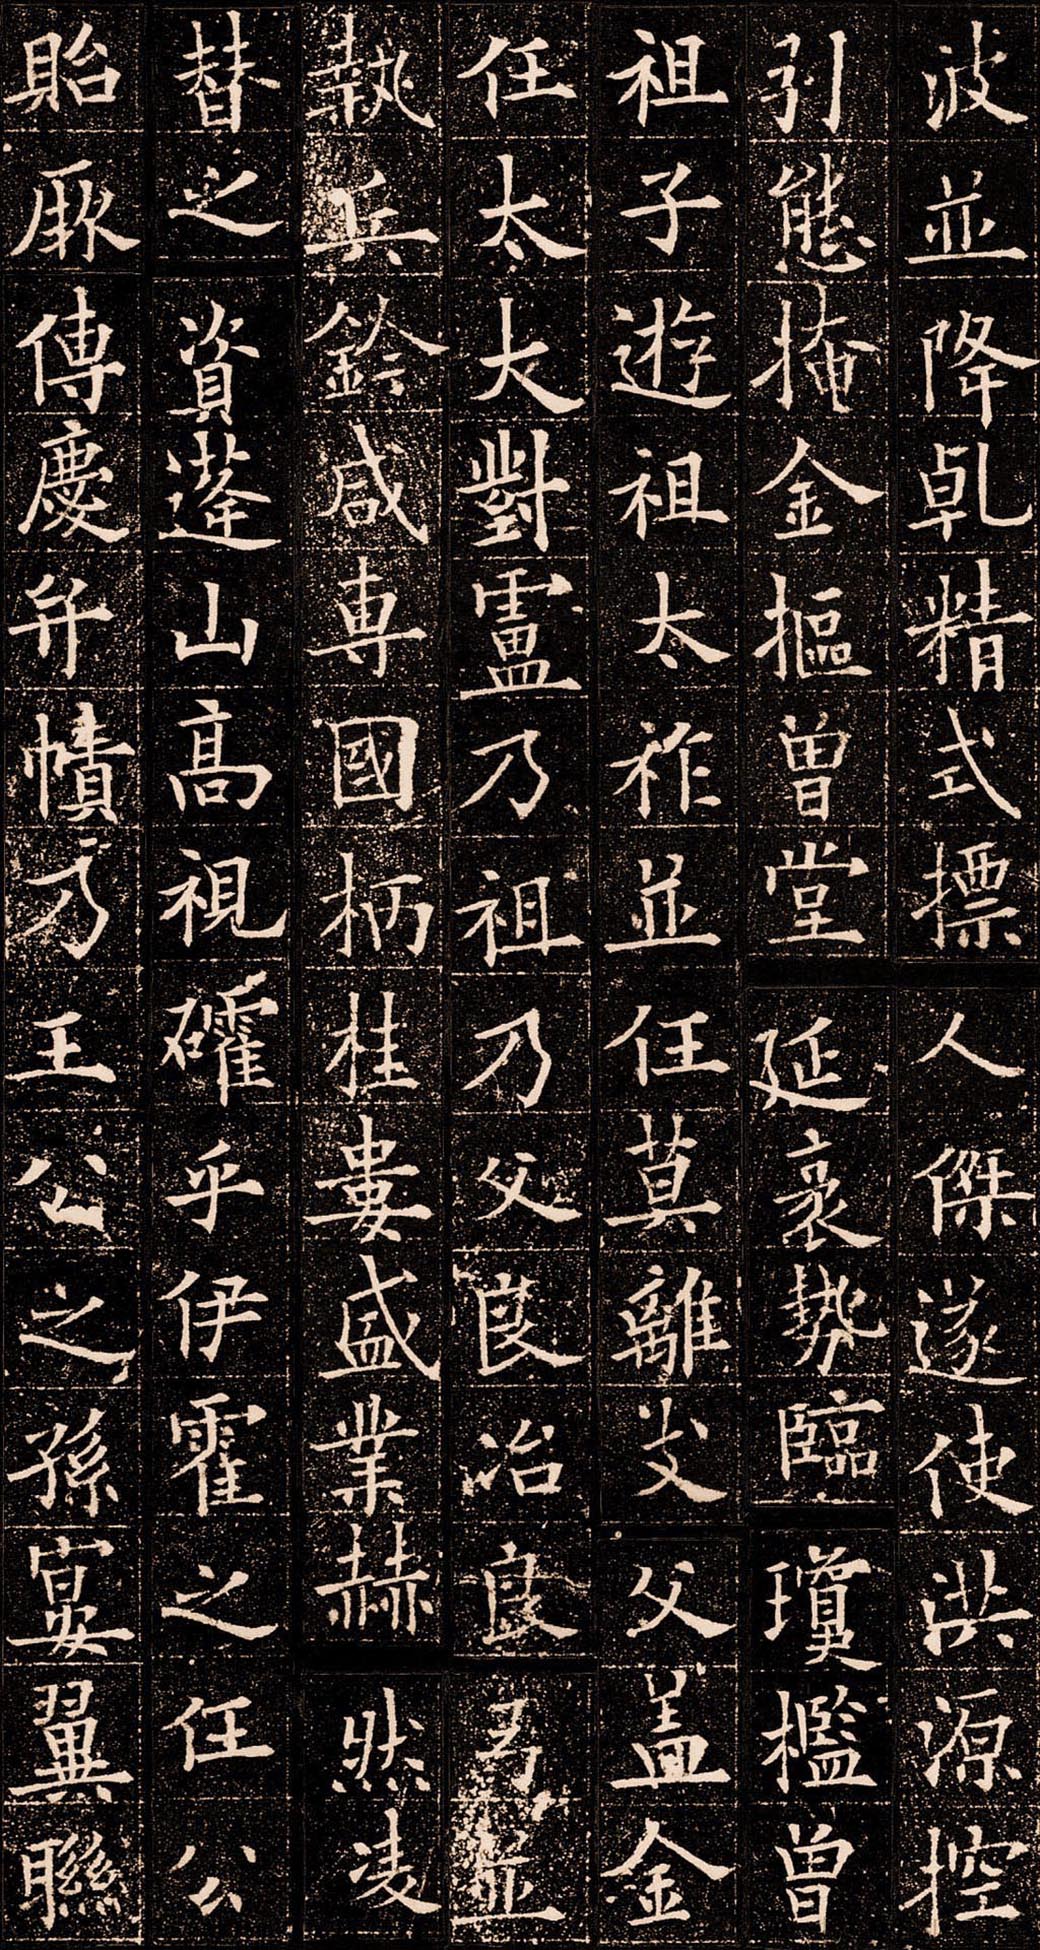 波並降乹精式摽人傑遂使洪源控
引態掩金摳曾堂延袤勢臨瓊檻曾
祖子遊祖太祚並任莫離支父盖金
任太大對盧乃祖乃父良冶良弓並
執兵鈐咸専國柄桂婁盛業赫然凌
替之資蓬山高視礭乎伊霍之任公
貽厥傳慶弁幘乃王公之孫宴翼聯